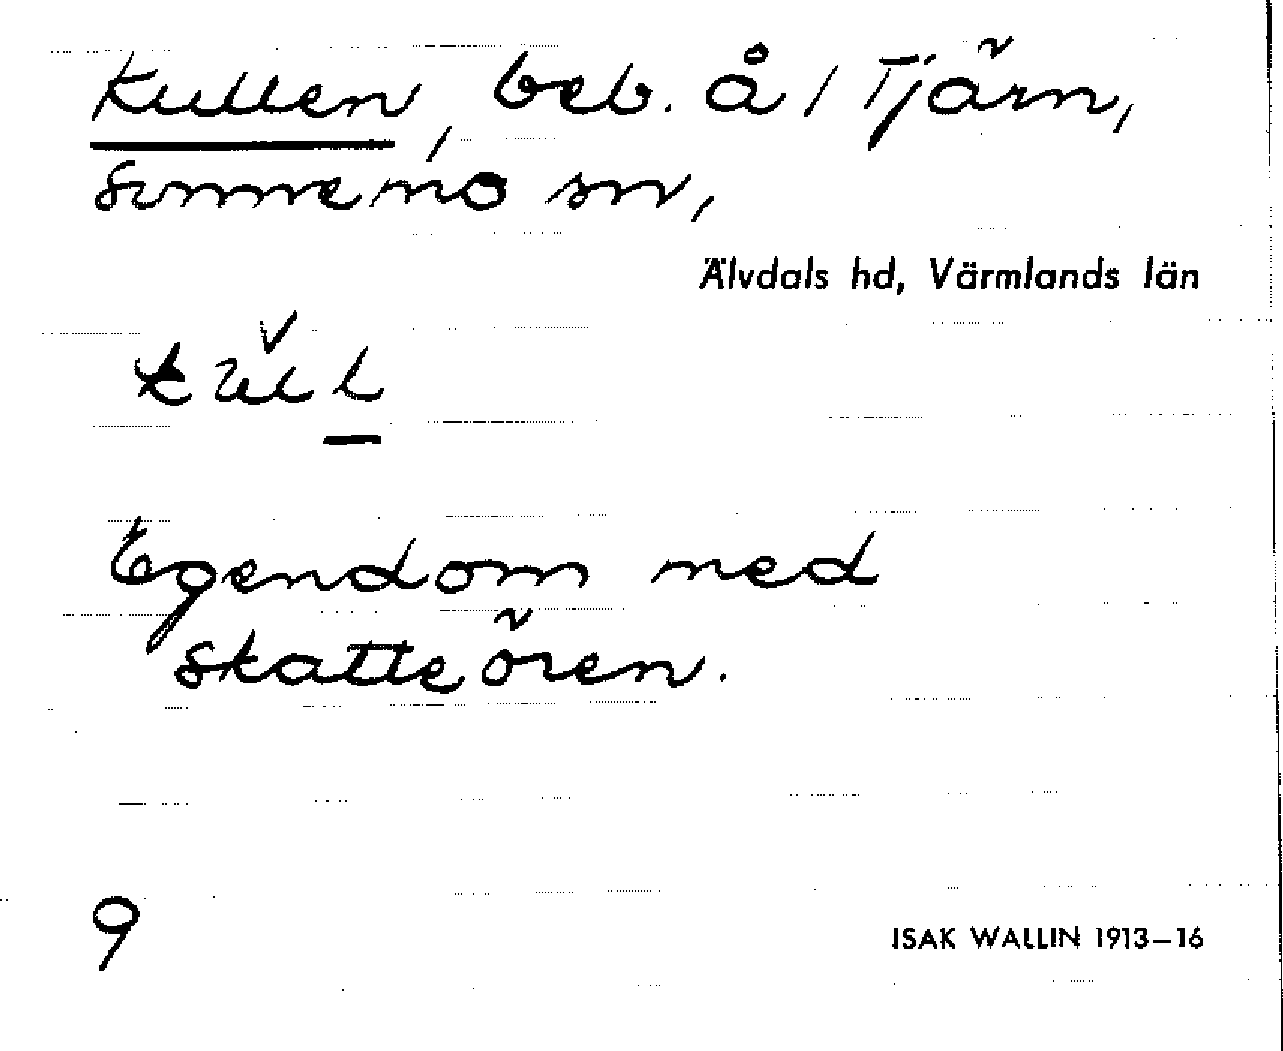 Kullen, beb. å 1 Tjärn,
Sunnemo sn,
Älvdals hd, Värmlands län
Egendom med
skatteören.
9
ISAK WALLIN 1913–16